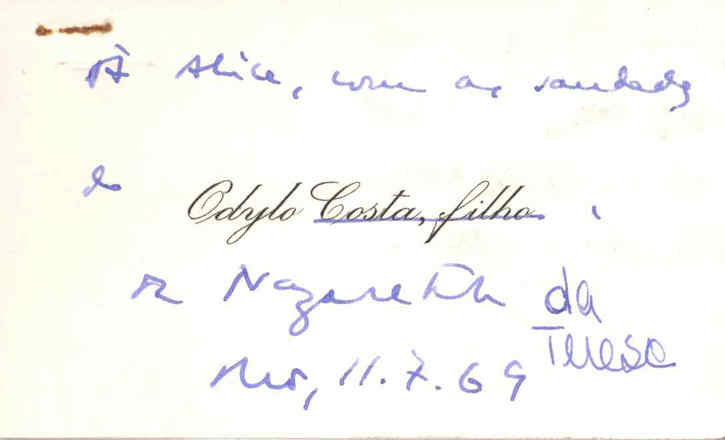 À Alice, com as saudades
do
Odylo Costa, filho,
da Nazareth da
Teresa
Rio, 11.7.69